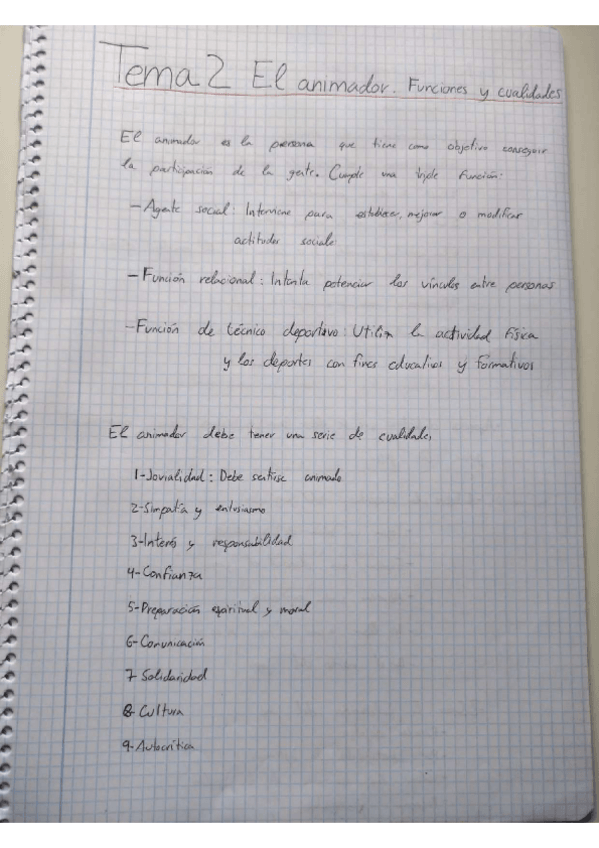 Tema 2 El animador. Funciones y cualidades
El animador es la persona que tiene como objetivo conseguir
la participación de la gente. Cumple una triple función:
- Agente social: Interviene para establecer, mejorar o modificar
actitudes sociales
- Función relacional: Intenta potenciar los vínculos entre personas
- Función de técnico deportivo: Utiliza la actividad física
y los deportes con fines educativos y formativos
El animador debe tener una serie de cualidades
1- Jovialidad: Debe sentirse animado
2- Simpatía y entusiasmo
3- Interés y responsabilidad
4- Confianza
5- Preparación espiritual y moral
6- Comunicación
7 Solidaridad
8- Cultura
9- Autocrítica